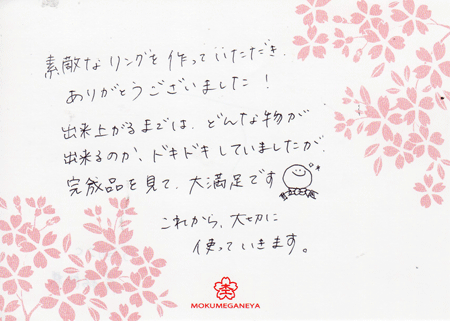 素敵なリングを作っていただき、
ありがとうございました！
出来上がるまでは、どんな物が
出来るのか、ドキドキしていましたが、
完成品を見て、大満足です
これから、大切に
使っていきます。
MOKUMEGANEYA